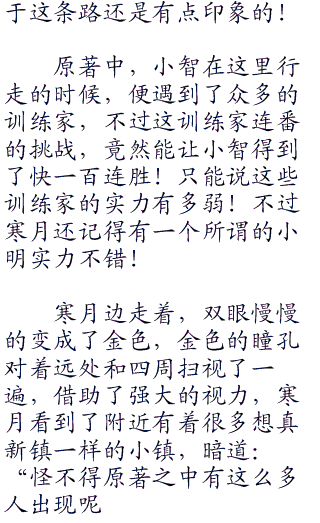 于这条路还是有点印象的！
原著中，小智在这里行
走的时候，便遇到了众多的
训练家，不过这训练家连番
的挑战，竟然能让小智得到
了快一百连胜！只能说这些
训练家的实力有多弱！不过
寒月还记得有一个所谓的小
明实力不错！
寒月边走着，双眼慢慢
的变成了金色，金色的瞳孔
对着远处和四周扫视了一
遍，借助了强大的视力，寒
月看到了附近有着很多想真
新镇一样的小镇，暗道：
“怪不得原著之中有这么多
人出现呢